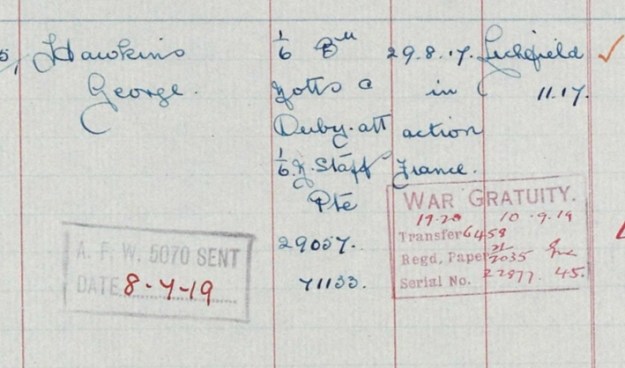 Hawkins 1/6 Bn 29.8.17. Lichfield
George. Notts & in 11.17.
Derby. att action
1/6 N. Staff France.
Pte
29057.
71133.
A. F. W. 5070 SENT
DATE 8-4-19
WAR GRATUITY.
19-20 10.9.19
Transfer 6458
Regd. Paper 2035
Serial No. 22877 45.